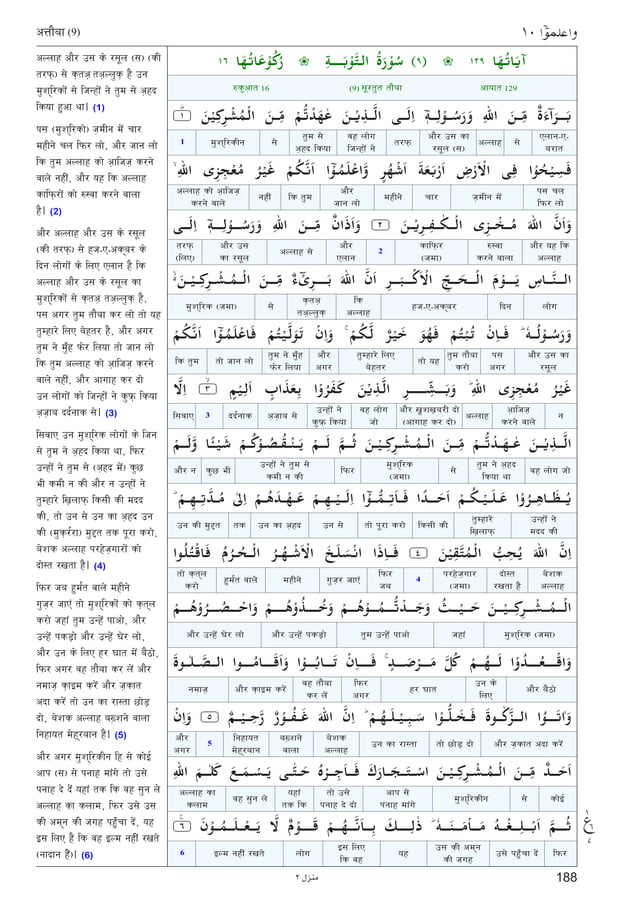 अत्तौबा (9)
واعلموٓا ١٠
अल्लाह और उस के रसूल (स) (की
तरफ़) से क़तअ़ तअ़ल्लुक़ है उन
मुश्रिकों से जिन्हों ने तुम से अ़हद
किया हुआ था। (1)
पस (मुश्रिको) ज़मीन में चार
महीने चल फिर लो, और जान लो
कि तुम अल्लाह को आ़जिज़ करने
वाले नहीं, और यह कि अल्लाह
काफ़िरों को रुस्वा करने वाला
है। (2)
और अल्लाह और उस के रसूल
(की तरफ़) से हज-ए-अक्बर के
दिन लोगों के लिए एलान है कि
अल्लाह और उस के रसूल का
मुश्रिकों से क़तअ़ तअ़ल्लुक़ है,
पस अगर तुम तौबा कर लो तो यह
तुम्हारे लिए बेहतर है, और अगर
तुम ने मुँह फेर लिया तो जान लो
कि तुम अल्लाह को आ़जिज़ करने
वाले नहीं, और आगाह कर दो
उन लोगों को जिन्हों ने कुफ़्र किया
अ़ज़ाब दर्दनाक से। (3)
सिवाए उन मुश्रिक लोगों के जिन
से तुम ने अ़हद किया था, फिर
उन्हों ने तुम से (अ़हद में) कुछ
भी कमी न की और न उन्हों ने
तुम्हारे ख़िलाफ़ किसी की मदद
की, तो उन से उन का अ़हद उन
की (मुक़र्ररा) मुद्दत तक पूरा करो,
बेशक अल्लाह परहेज़गारों को
दोस्त रखता है। (4)
फिर जब हुर्मत वाले महीने
गुज़र जाएं तो मुश्रिकों को क़त्ल
करो जहां तुम उन्हें पाओ, और
उन्हें पकड़ो और उन्हें घेर लो,
और उन के लिए हर घात में बैठो,
फिर अगर वह तौबा कर लें और
नमाज़ क़ाइम करें और ज़कात
अदा करें तो उन का रास्ता छोड़
दो, बेशक अल्लाह बख़्शने वाला
निहायत मेह्रबान है। (5)
और अगर मुश्रिकीन हि से कोई
आप (स) से पनाह मांगे तो उसे
पनाह दे दें यहां तक कि वह सुन ले
अल्लाह का कलाम, फिर उसे उस
की अम्न की जगह पहुँचा दें, यह
इस लिए है कि वह इल्म नहीं रखते
(नादान हैं)। (6)
اٰيَاتُهَا ١٢٩ ❀ (٩) سُوْرَةُ التَّوْبَةِ ❀ رُكُوْعَاتُهَا ١٦
रुकुआ़त 16 (9) सूरतुत तौबा आयात 129
بَرَآءَةٌ مِّنَ اللّٰهِ وَرَسُوْلِهٖٓ اِلَى الَّذِيْنَ عٰهَدْتُّمْ مِّنَ الْمُشْرِكِيْنَ ۭ ١
1 मुश्रिकीन से तुम से अ़हद किया वह लोग जिन्हों ने तरफ़ और उस का रसूल (स) अल्लाह से एलान-ए-बरात
فَسِيْحُوْا فِى الْاَرْضِ اَرْبَعَةَ اَشْهُرٍ وَّاعْلَمُوْٓا اَنَّكُمْ غَيْرُ مُعْجِزِى اللّٰهِ ۙ
अल्लाह को आ़जिज़ करने वाले नहीं कि तुम और जान लो महीने चार ज़मीन में पस चल फिर लो
وَاَنَّ اللّٰهَ مُخْزِى الْكٰفِرِيْنَ ٢ وَاَذَانٌ مِّنَ اللّٰهِ وَرَسُوْلِهٖٓ اِلَى
तरफ़ (लिए) और उस का रसूल अल्लाह से और एलान 2 काफ़िर (जमा) रुस्वा करने वाला और यह कि अल्लाह
النَّاسِ يَوْمَ الْحَجِّ الْاَكْبَرِ اَنَّ اللّٰهَ بَرِىْٓءٌ مِّنَ الْمُشْرِكِيْنَ ۙ
मुश्रिक (जमा) से क़तअ़ तअ़ल्लुक़ कि अल्लाह हज-ए-अक्बर दिन लोग
وَرَسُوْلُهٗ ۭ فَاِنْ تُبْتُمْ فَهُوَ خَيْرٌ لَّكُمْ ۚ وَاِنْ تَوَلَّيْتُمْ فَاعْلَمُوْٓا اَنَّكُمْ
कि तुम तो जान लो तुम ने मुँह फेर लिया और अगर तुम्हारे लिए बेहतर तो यह तुम तौबा करो पस अगर और उस का रसूल
غَيْرُ مُعْجِزِى اللّٰهِ ۭ وَبَشِّرِ الَّذِيْنَ كَفَرُوْا بِعَذَابٍ اَلِيْمٍ ۙ ٣ اِلَّا
सिवाए 3 दर्दनाक अ़ज़ाब से उन्हों ने कुफ़्र किया वह लोग जो और ख़ुशख़बरी दो (आगाह कर दो) अल्लाह आ़जिज़ करने वाले न
الَّذِيْنَ عٰهَدْتُّمْ مِّنَ الْمُشْرِكِيْنَ ثُمَّ لَمْ يَنْقُصُوْكُمْ شَيْـًٔا وَّلَمْ
और न कुछ भी उन्हों ने तुम से कमी न की फिर मुश्रिक (जमा) से तुम ने अ़हद किया था वह लोग जो
يُظَاهِرُوْا عَلَيْكُمْ اَحَدًا فَاَتِمُّوْٓا اِلَيْهِمْ عَهْدَهُمْ اِلٰى مُدَّتِهِمْ ۭ
उन की मुद्दत तक उन का अ़हद उन से तो पूरा करो किसी की तुम्हारे ख़िलाफ़ उन्हों ने मदद की
اِنَّ اللّٰهَ يُحِبُّ الْمُتَّقِيْنَ ٤ فَاِذَا انْسَلَخَ الْاَشْهُرُ الْحُرُمُ فَاقْتُلُوا
तो क़त्ल करो हुर्मत वाले महीने गुज़र जाएं फिर जब 4 परहेज़गार (जमा) दोस्त रखता है बेशक अल्लाह
الْمُشْرِكِيْنَ حَيْثُ وَجَدْتُّمُوْهُمْ وَخُذُوْهُمْ وَاحْصُرُوْهُمْ
और उन्हें घेर लो और उन्हें पकड़ो तुम उन्हें पाओ जहां मुश्रिक (जमा)
وَاقْعُدُوْا لَهُمْ كُلَّ مَرْصَدٍ ۚ فَاِنْ تَابُوْا وَاَقَامُوا الصَّلٰوةَ
नमाज़ और क़ाइम करें वह तौबा कर लें फिर अगर हर घात उन के लिए और बैठो
وَاٰتَوُا الزَّكٰوةَ فَخَلُّوْا سَبِيْلَهُمْ ۭ اِنَّ اللّٰهَ غَفُوْرٌ رَّحِيْمٌ ٥ وَاِنْ
और अगर 5 निहायत मेह्रबान बख़्शने वाला बेशक अल्लाह उन का रास्ता तो छोड़ दो और ज़कात अदा करें
اَحَدٌ مِّنَ الْمُشْرِكِيْنَ اسْتَجَارَكَ فَاَجِرْهُ حَتّٰى يَسْمَعَ كَلٰمَ اللّٰهِ
अल्लाह का कलाम वह सुन ले यहां तक कि तो उसे पनाह दे दो आप से पनाह मांगे मुश्रिकीन से कोई
ثُمَّ اَبْلِغْهُ مَاْمَنَهٗ ۭ ذٰلِكَ بِاَنَّهُمْ قَوْمٌ لَّا يَعْلَمُوْنَ ۧ ٦
6 इल्म नहीं रखते लोग इस लिए कि वह यह उस की अम्न की जगह उसे पहुँचा दें फिर
منزل ٢
188